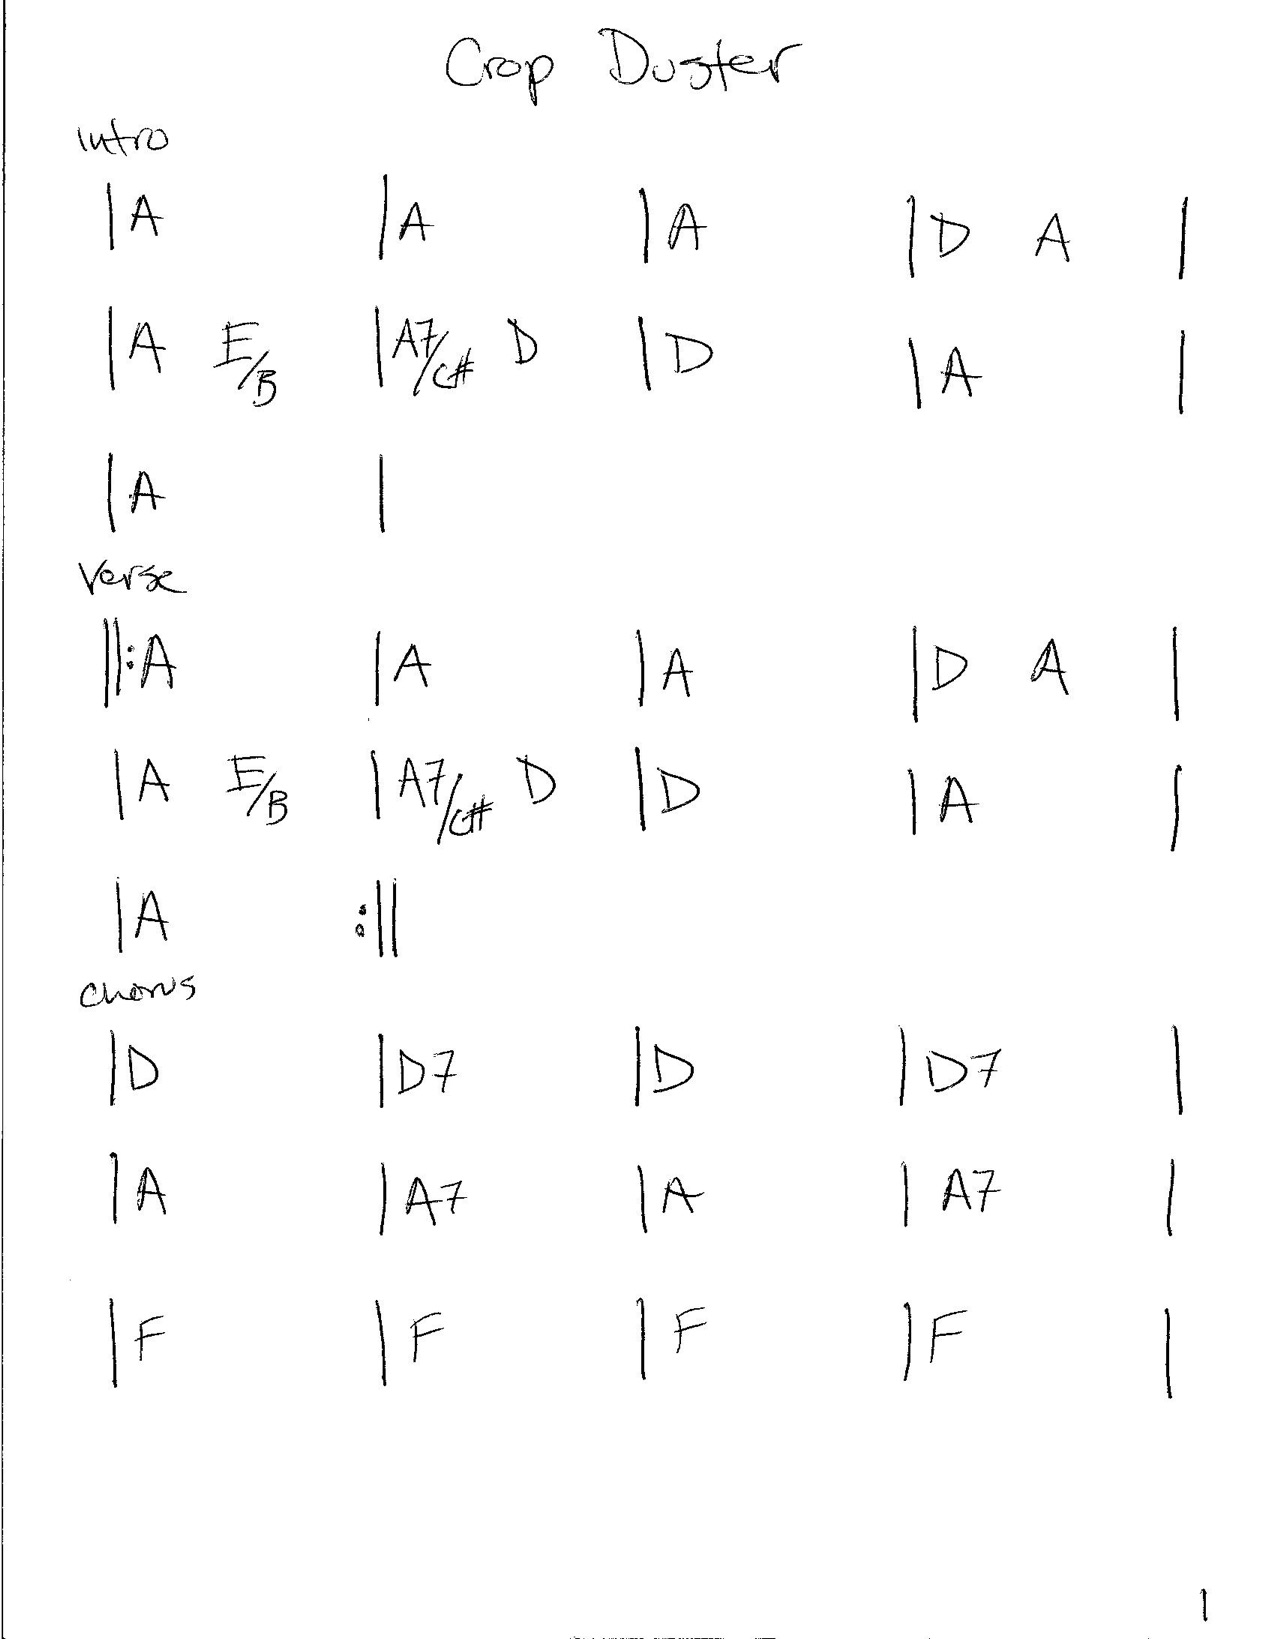 Crop Duster
Intro
|A |A |A |D A |
|A E/B |A7/C# D |D |A |
|A |
Verse
||:A |A |A |D A |
|A E/B |A7/C# D |D |A |
|A :||
Chorus
|D |D7 |D |D7 |
|A |A7 |A |A7 |
|F |F |F |F |
1